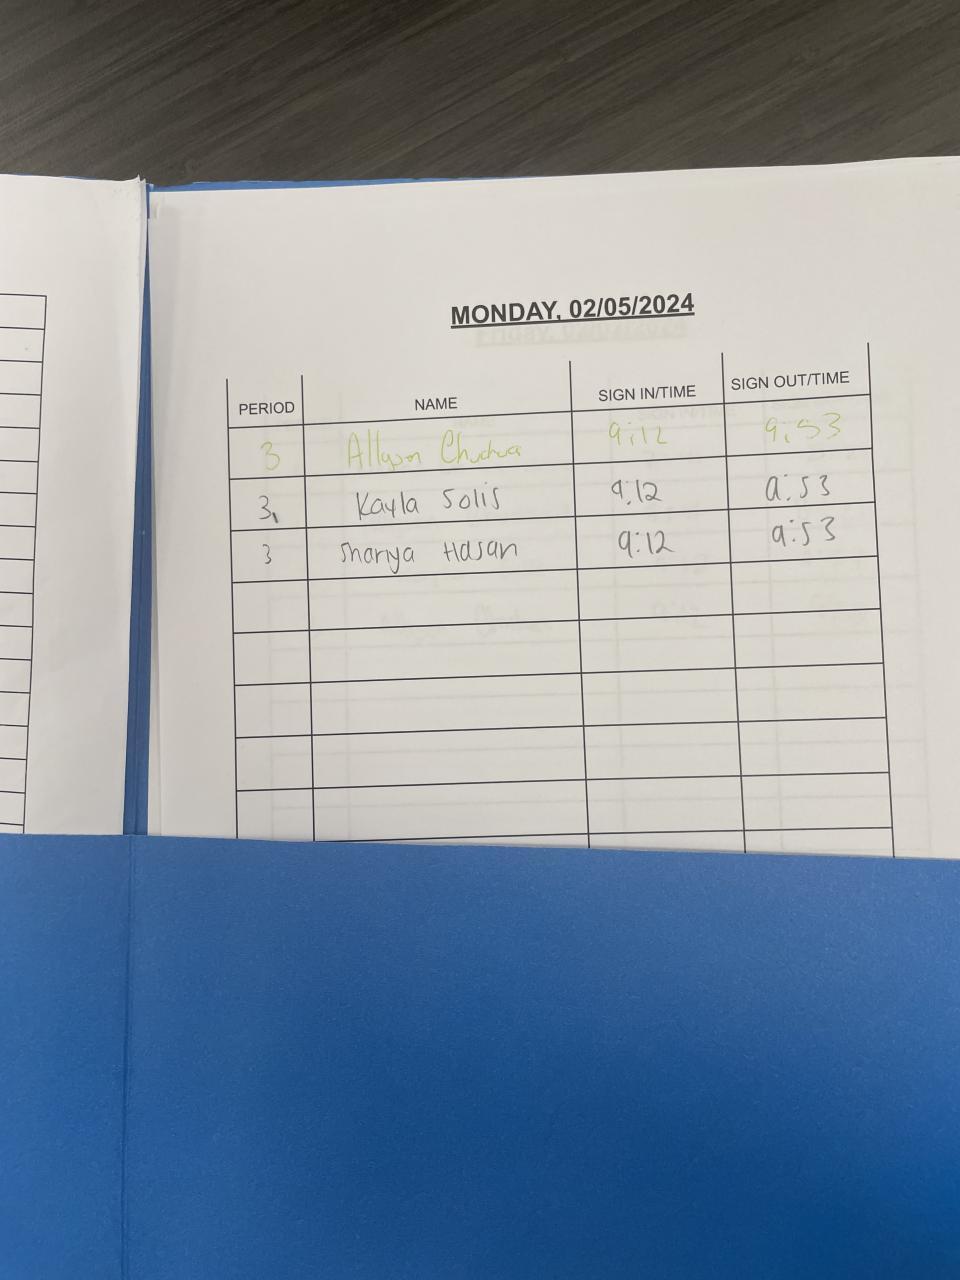 MONDAY, 02/05/2024
PERIOD NAME SIGN IN/TIME SIGN OUT/TIME
3 Allyson 9:12 9:53
3 Kayla Solis 9:12 9:53
3 Hasan 9:12 9:53